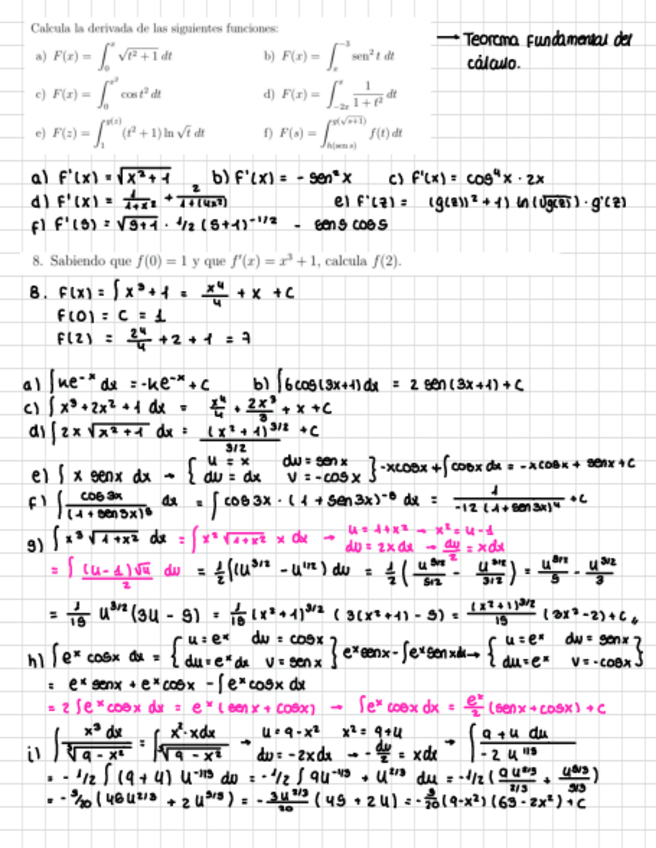 Calcula la derivada de las siguientes funciones:
→ Teorema Fundamental del cálculo.
a) F(x) = ∫₀ˣ √(t² + 1) dt
b) F(x) = ∫ₓ⁻³ sen² t dt
c) F(x) = ∫₀^(x²) cos t² dt
d) F(x) = ∫₋₂ₓˣ 1/(1 + t²) dt
e) F(z) = ∫₁^(g(z)) (t² + 1) ln √t dt
f) F(s) = ∫_(h(sen s))^(g(√(s+1))) f(t) dt
a) F'(x) = √(x²+1) b) F'(x) = - sen² x c) F'(x) = cos⁴x · 2x
d) F'(x) = 1/(1+x²) + 2/(1+(4x²)) e) F'(z) = (g(z))² + 1) ln (√g(z)) · g'(z)
f) F'(s) = √(s+1) · 1/2 (s+1)^(-1/2) - sen s cos s
8. Sabiendo que f(0) = 1 y que f'(x) = x³ + 1, calcula f(2).
8. F(x) = ∫ x³ + 1 = x⁴/4 + x + C
F(0) = C = 1
F(2) = 2⁴/4 + 2 + 1 = 7
a) ∫ ke^(-x) dx = -ke^(-x) + C b) ∫ 6 cos (3x+1) dx = 2 sen (3x+1) + C
c) ∫ x³ + 2x² + 1 dx = x⁴/4 + 2x³/3 + x + C
d) ∫ 2x √(x²+1) dx = (x²+1)^(3/2)/(3/2) + C
e) ∫ x senx dx → { u = x dv = senx du = dx v = -cosx } -xcosx + ∫ cosx dx = -xcosx + senx + C
f) ∫ cos 3x/(1+sen3x)⁵ dx = ∫ cos 3x · (1 + sen 3x)⁻⁵ dx = 1/(-12 (1+sen3x)⁴) + C
g) ∫ x³ √(1+x²) dx = ∫ x² √(1+x²) x dx → u = 1+x² → x² = u-1 du = 2x dx → du/2 = x dx
= ∫ (u-1)√u/2 du = 1/2 ∫ (u^(3/2) - u^(1/2)) du = 1/2 ( u^(5/2)/(5/2) - u^(3/2)/(3/2) ) = u^(5/2)/5 - u^(3/2)/3
= 1/15 u^(3/2) (3u - 5) = 1/15 (x²+1)^(3/2) (3(x²+1) - 5) = (x²+1)^(3/2)/15 (3x²-2) + C
h) ∫ eˣ cosx dx = { u = eˣ dv = cosx du = eˣ dx v = senx } eˣ senx - ∫ eˣ senx dx → { u = eˣ dv = senx du = eˣ v = -cosx }
= eˣ senx + eˣ cosx - ∫ eˣ cosx dx
= 2 ∫ eˣ cosx dx = eˣ (senx + cosx) → ∫ eˣ cosx dx = eˣ/2 (senx + cosx) + C
i) ∫ x³ dx/∛(9 - x²) = ∫ x² · xdx/∛(9 - x²) → u = 9 - x² x² = 9+u du = -2x dx → -du/2 = xdx → ∫ 9 + u du/(-2 u^(1/3))
= -1/2 ∫ (9 + u) u^(-1/3) du = -1/2 ∫ 9u^(-1/3) + u^(2/3) du = -1/2 ( 9u^(2/3)/(2/3) + u^(5/3)/(5/3) )
= -3/20 (45 u^(2/3) + 2u^(5/3)) = - 3u^(2/3)/20 (45 + 2u) = -3/20 (9-x²) (63 - 2x²) + C